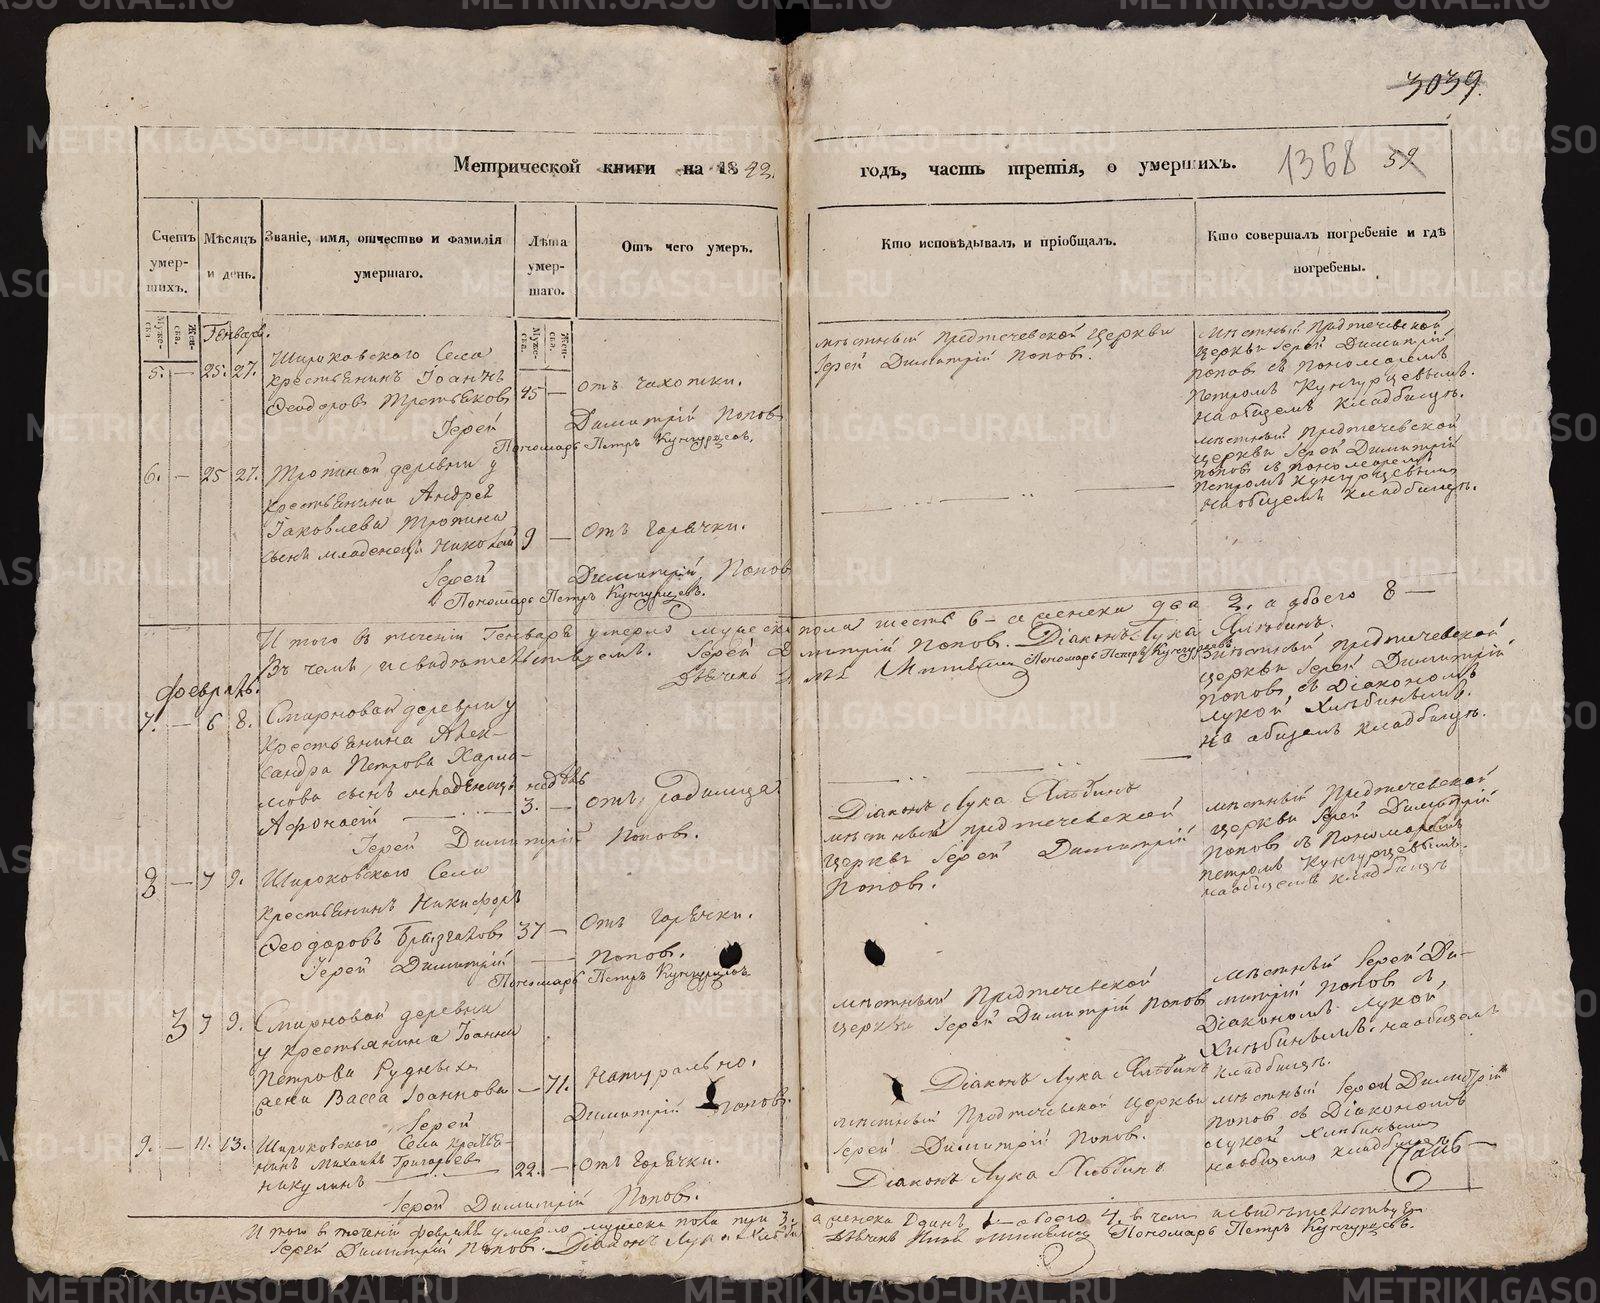 3039.
Метрической книги на 1842.
годъ, часть третія, о умершихъ.
1368
59
Счетъ умер-шихъ.
Мѣсяцъ и день.
Званіе, имя, отчество и фамилія умершаго.
Лѣта умер-шаго.
Отъ чего умеръ.
Кто исповѣдывалъ и пріобщалъ.
Кто совершалъ погребеніе и гдѣ погребены.
Муже-ска.
Жен-ска.
Муже-ска.
Жен-ска.
Генварь.
5. — 25. 27.
Широковскаго Села
крестьянинъ Іоаннъ
Ѳеодоровъ Третьяковъ
45 —
отъ чахотки.
Іерей Димитрій Поповъ
Пономарь Петръ Кунгурцевъ.
мѣстный Предтечевской Церкви
Іерей Димитрій Поповъ.
Мѣстный Предтечевской
церкви Іерей Димитрій
Поповъ съ пономаремъ
Петромъ Кунгурцевымъ.
на общемъ кладбищѣ.
6. — 25 27.
Тропиной деревни у
крестьянина Андрея
Іаковлева Тропина
сынъ младенецъ Николай
9 —
Отъ горячки.
Іерей Димитрій Поповъ
Пономарь Петръ Кунгурцевъ.
мѣстный Предтечевской
церкви Іерей Димитрій
Поповъ съ пономаремъ
Петромъ Кунгурцевымъ
на общемъ кладбищѣ.
Итого въ теченіи Генваря умерло мужеска пола шесть 6 — а женска два 2. а обоего 8 —
Въ чемъ и свидѣтельствуемъ. Іерей Димитрій Поповъ. Діаконъ Лука Хлѣбинъ.
Пономарь Петръ Кунгурцевъ
февраль.
7. — 6 8.
Смирновой деревни у
крестьянина Алек-
сандра Петрова Харла-
мова сынъ младенецъ
Аѳонасій
недѣль
3. —
отъ родимца
Іерей Димитрій Поповъ.
Діаконъ Лука Хлѣбинъ
мѣстный Предтечевской
церкви Іерей Димитрій
Поповъ съ Діакономъ
Лукой Хлѣбинымъ.
на общемъ кладбищѣ.
8 — 7 9.
Широковскаго Села
крестьянинъ Никифоръ
Ѳеодоровъ Брызгаловъ
37 —
Отъ горячки.
Іерей Димитрій Поповъ.
Пономарь Петръ Кунгурцевъ
мѣстный предтечевской
церкви Іерей Димитрій
Поповъ.
мѣстный Предтечевской
церкви Іерей Димитрій
Поповъ съ Пономаремъ
Петромъ Кунгурцевымъ.
на общемъ кладбищѣ
3 7 9.
Смирновой деревни
у крестьянина Іоанна
Петрова Рудныхъ
жена Васса Іоаннова
— 71.
Натурально.
Іерей Димитрій Поповъ.
мѣстный Предтечевской
церкви Іерей Димитрій Поповъ
Діаконъ Лука Хлѣбинъ
мѣстный Іерей Ди-
митрій Поповъ съ
Діакономъ Лукой
Хлѣбинымъ. на общемъ
кладбищѣ.
9. — 11. 13.
Широковскаго Села крестья-
нинъ Михаилъ Григорьевъ
Никулинъ
22. —
Отъ горячки.
Іерей Димитрій Поповъ.
мѣстный Предтечевской церкви
Іерей Димитрій Поповъ.
Діаконъ Лука Хлѣбинъ
мѣстный Іерей Димитрій
Поповъ съ Діакономъ
Лукой Хлѣбинымъ
на общемъ кладбищѣ
Итого въ теченіи февраля умерло мужеска пола три 3. а женска Одинъ 1 — обоего 4. въ чемъ и свидѣтельствуемъ
Іерей Димитрій Поповъ. Діаконъ Лука Хлѣбинъ
Пономарь Петръ Кунгурцевъ.
METRIKI.GASO-URAL.RU